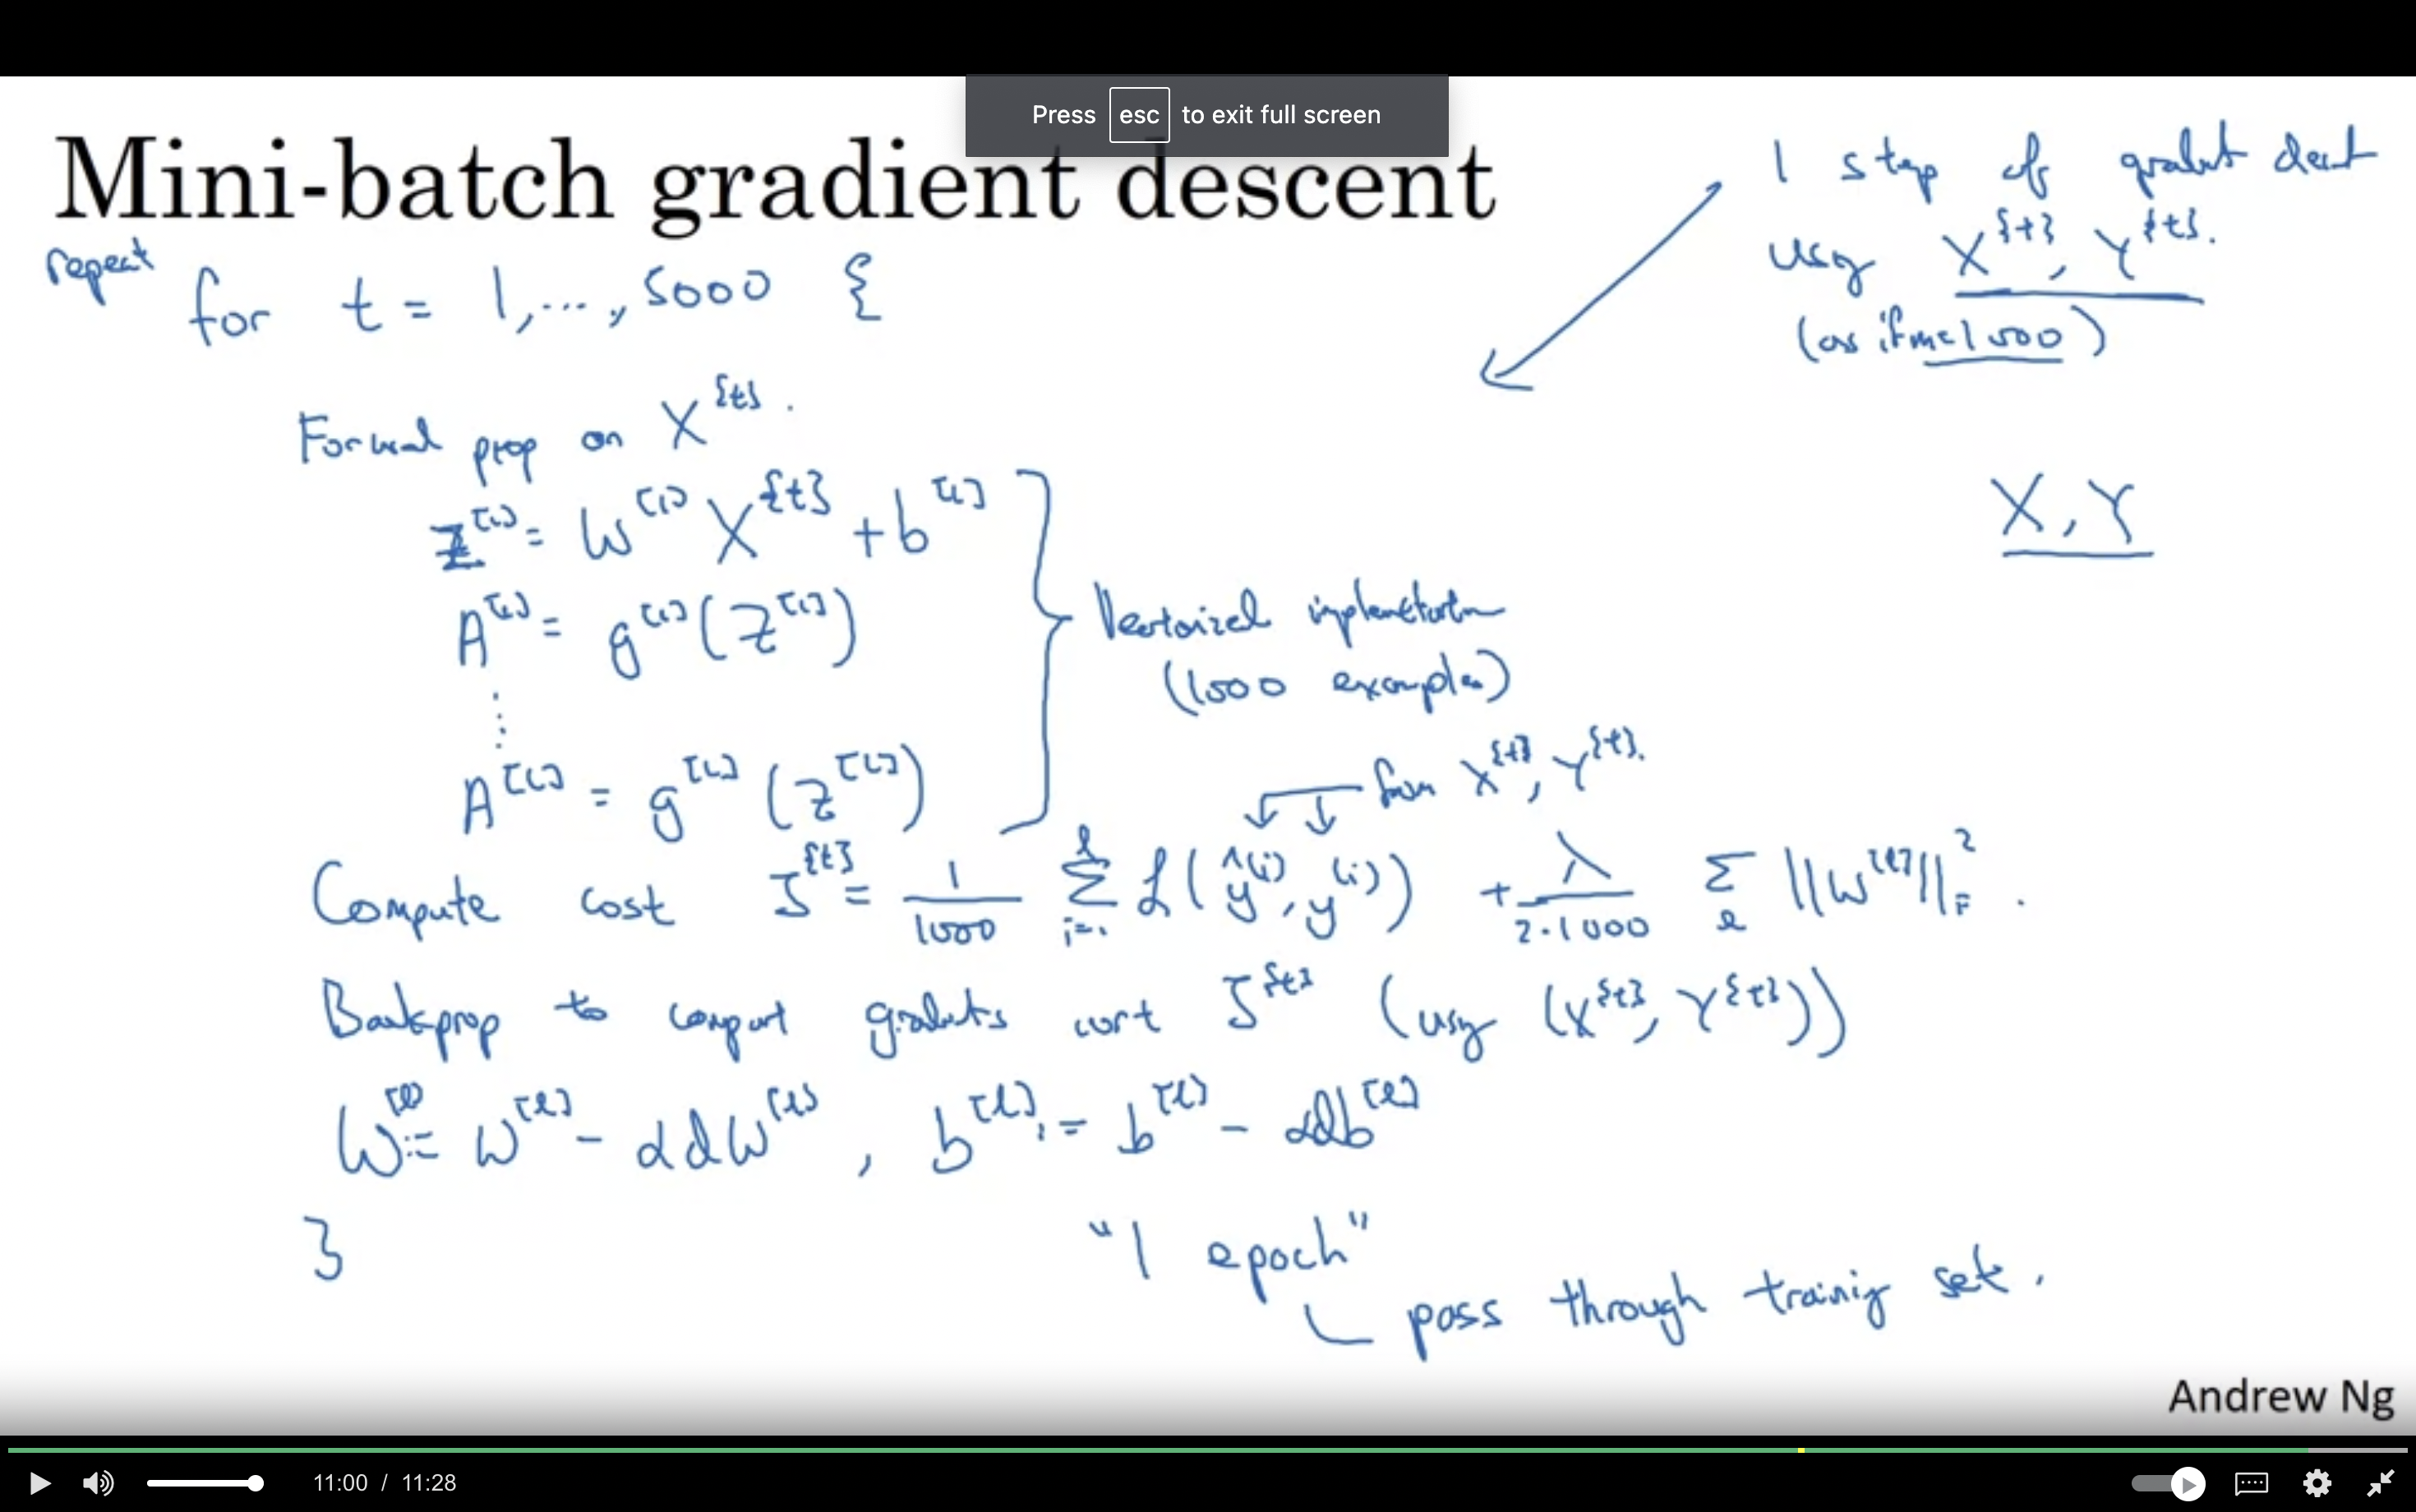 Press esc to exit full screen
Mini-batch gradient descent
1 step of gradient descent
using X^{t}, Y^{t}.
(as if m=1000)
repeat
for t = 1,..., 5000 {
Forward prop on X^{t}.
X, Y
Z^[1] = W^[1] X^{t} + b^[1]
A^[1] = g^[1](Z^[1])
Vectorized implementation
(1000 examples)
⋮
A^[L] = g^[L](Z^[L])
from X^{t}, Y^{t}.
Compute cost J^{t} = 1/1000 Σ_{i=1}^{l} L(ŷ^(i), y^(i)) + λ/(2·1000) Σ_l ||W^[l]||_F^2.
Backprop to comput gradients wrt J^{t} (using (X^{t}, Y^{t}))
W^[l] := W^[l] - αdW^[l], b^[l] := b^[l] - αdb^[l]
}
"1 epoch"
pass through training set.
Andrew Ng
11:00 / 11:28